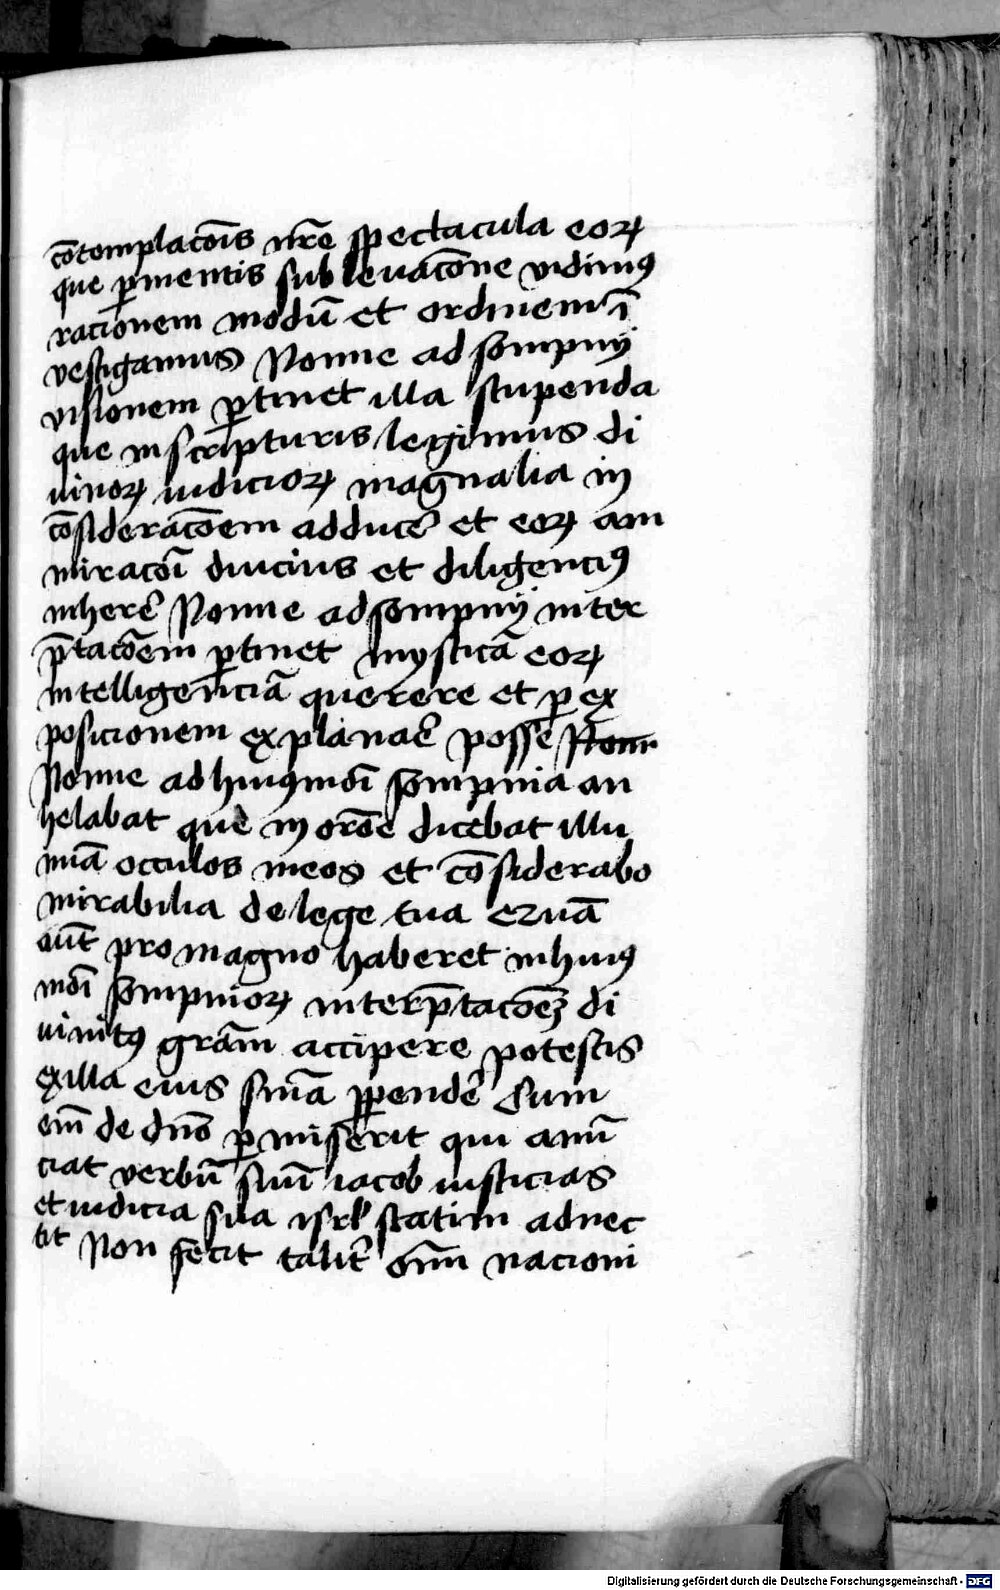 cōtomplacōis nr̄e spectacula eoꝝ
que ꝑ mentis subleuacōne vidimꝰ
racionem modū et ordinem ī
vestigamus Nonne ad sompnij
visionem ꝑtinet illa stupenda
que in scripturis legimus di
uinoꝝ iudicioꝝ magnalia in
cōsideracōem adducē et eoꝝ am
miracōi diucius et diligenciꝰ
inherē Nonne ad sompnij inter
p̄tacōem ꝑtinet mysticā eoꝝ
intelligenciā querere et ꝑ ex
posicionem explanaē posse Nonn
Nonne ad huiꝰmōi sompnia an
helabat que in orōe dicebat illu
miā occulos meos et cōsiderabo
mirabilia de lege tua
aūt pro magno haberet in huiꝰ
mōi sompnioꝝ interp̄tacōeꝫ di
uinitꝰ grām accipere potestis
ex illa eius sn̄ia ꝑpendē Cum
em̄ de dn̄o ꝑmiserit qui anū
ciat verbū suū iacob iusticias
et iudicia sua isrl̄ statim adnec
tit Non fecit talit̄ om̄i nacioni
Digitalisierung gefördert durch die Deutsche Forschungsgemeinschaft - DFG